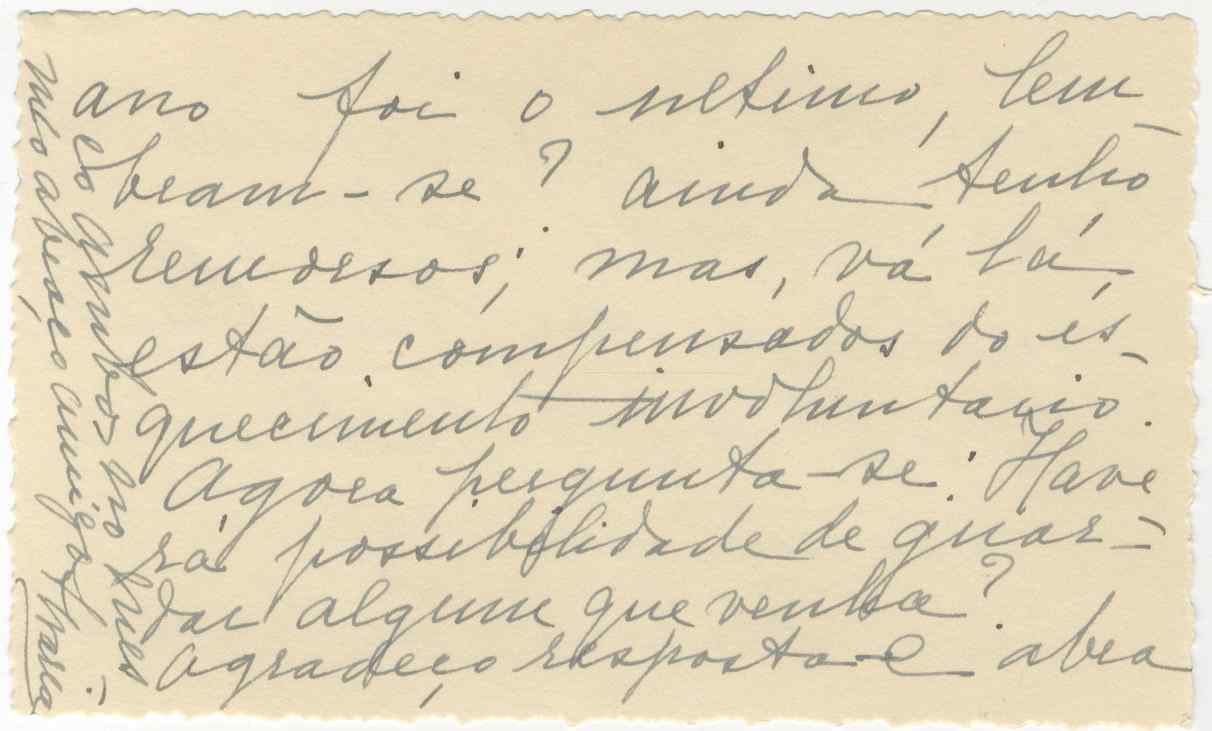 ano foi o ultimo, lem-
bram-se? ainda tenho
remorsos; mas, vá lá,
estão compensados do es-
quecimento involuntario.
Agora pergunta-se: Have
rá possibilidade de guar-
dar algum que venha?
Agradeço resposta e abra
ço ambos no mes
mo abraço amigo Maria